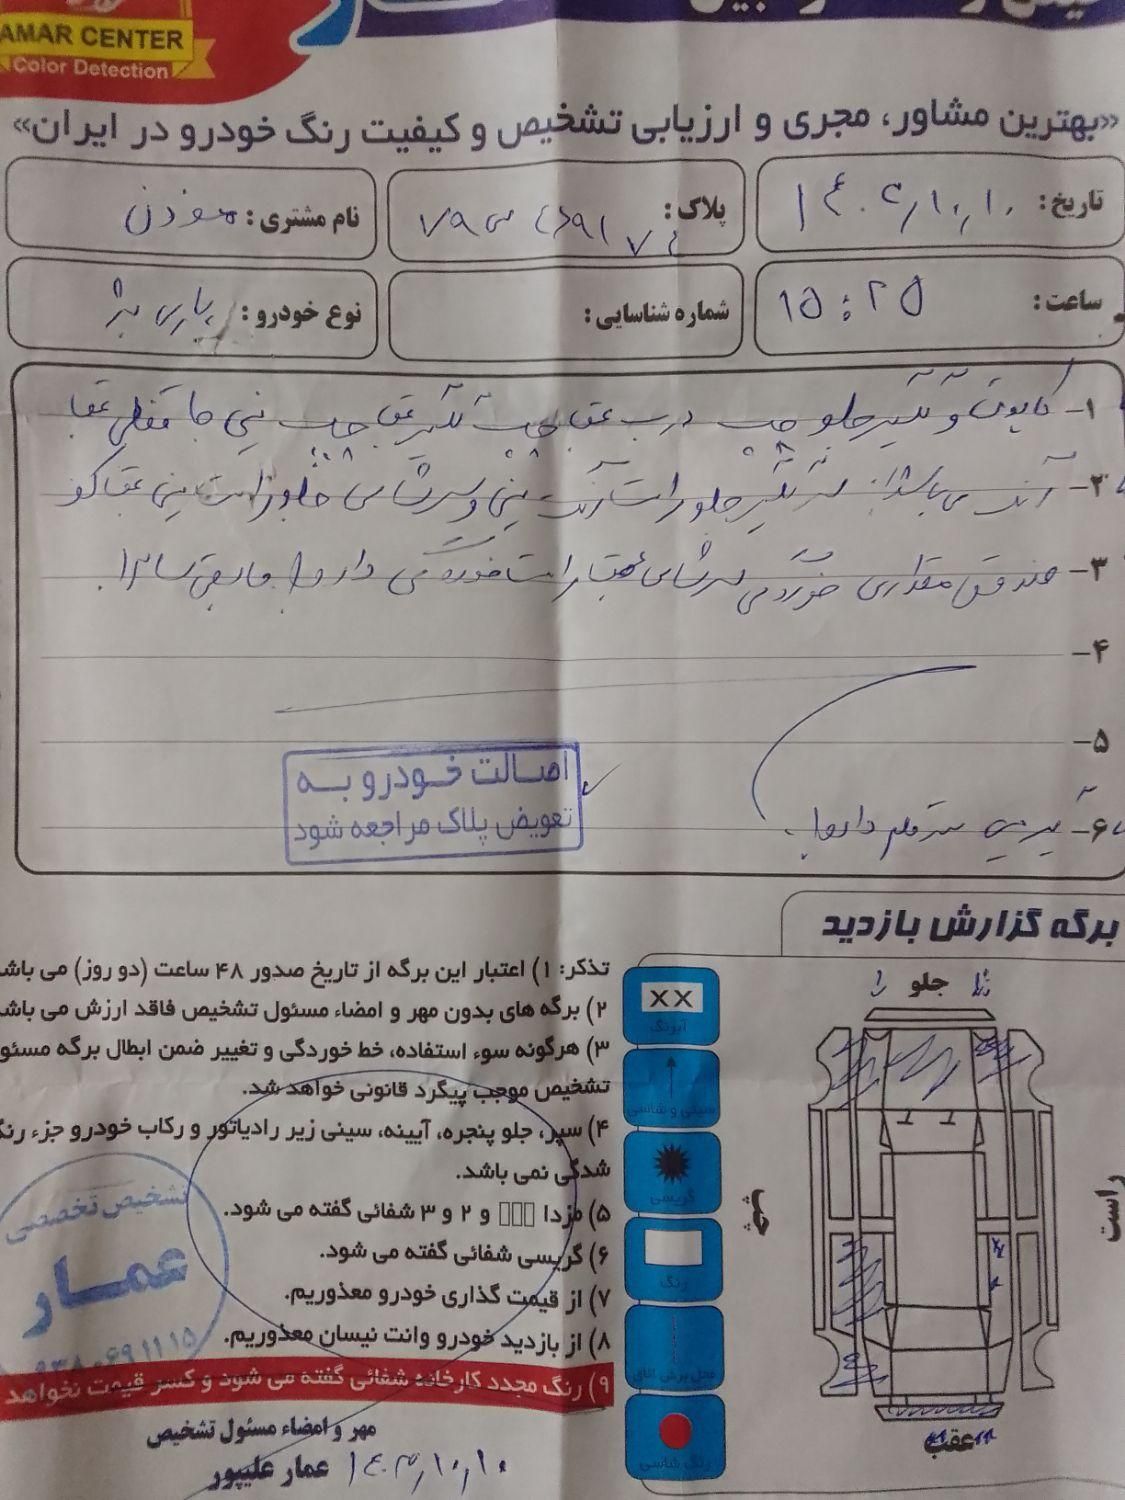 AMAR CENTER
Color Detection
«بهترین مشاور، مجری و ارزیابی تشخیص و کیفیت رنگ خودرو در ایران»
تاریخ:
پلاک:
نام مشتری: موذن
ساعت: ۱۵:۲۵
شماره شناسایی:
نوع خودرو:
۱- کاپوت و گلگیر جلو چپ درب عقب چپ گلگیر عقب چپ سینی جا قفلی عقب
۲- رنگ می باشد گلگیر جلو راست رنگ سینی و سرشاسی جلو راست سینی عقب کف
۳- صندوق مقداری خوردگی سرشاسی عقب راست خوردگی دارد مابقی سالم
۴-
۵-
۶-
اصالت خودرو به
تعویض پلاک مراجعه شود
برگه گزارش بازدید
جلو
چپ
راست
عقب
XX
آبرنگ
سینی و شاسی
گریسی
رنگ
محل برش اتاق
رنگ شاسی
تذکر: ۱) اعتبار این برگه از تاریخ صدور ۴۸ ساعت (دو روز) می باشد
۲) برگه های بدون مهر و امضاء مسئول تشخیص فاقد ارزش می باشد
۳) هرگونه سوء استفاده، خط خوردگی و تغییر ضمن ابطال برگه مسئو
تشخیص موجب پیگرد قانونی خواهد شد.
۴) سپر، جلو پنجره، آیینه، سینی زیر رادیاتور و رکاب خودرو جزء رنگ
شدگی نمی باشد.
۵) مزدا □□□ و ۲ و ۳ شفائی گفته می شود.
۶) گریسی شفائی گفته می شود.
۷) از قیمت گذاری خودرو معذوریم.
۸) از بازدید خودرو وانت نیسان معذوریم.
۹) رنگ مجدد کارخانه شفائی گفته می شود و کسر قیمت نخواهد
تشخیص تخصصی
عمار
مهر و امضاء مسئول تشخیص
عمار علیپور ۱۴۰۳/۱۰/۱۰